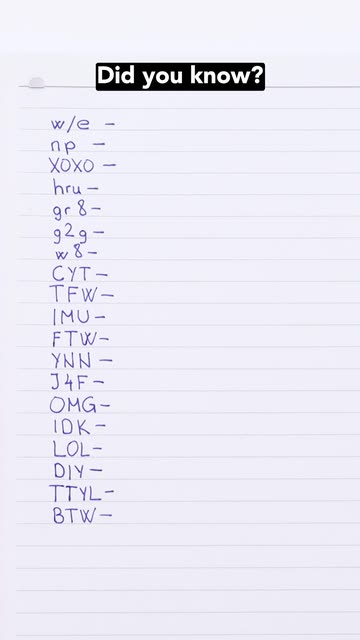 Did you know?
w/e -
np -
XOXO -
hru -
gr8 -
g2g -
w8 -
CYT -
TFW -
IMU -
FTW -
YNN -
J4F -
OMG -
IDK -
LOL -
DIY -
TTYL -
BTW -